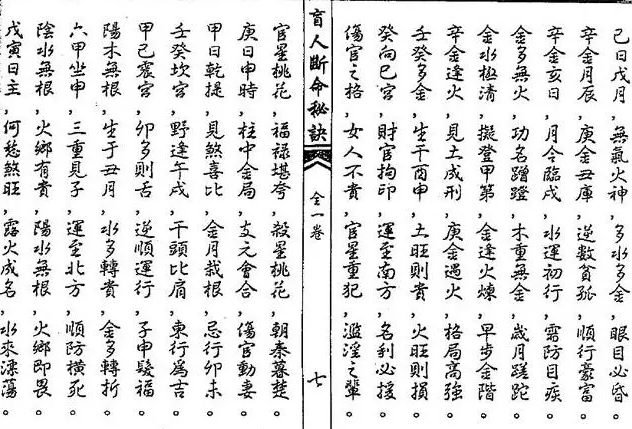 己日戌月，無氣火神，多水多金，眼目必昏。
辛金月辰，庚金丑庫，逆數貧孤，順行豪富。
辛金亥日，月令臨戌，水運初行，需防目疾。
金多無火，功名蹭蹬，木重無金，歲月蹉跎。
金水極清，擬登甲第，金逢火煉，早步金階。
辛金逢火，見土成刑，庚金遇火，格局高強。
壬癸多金，生于酉申，土旺則貴，火旺則損。
癸向巳宮，財官拘印，運至南方，名利必援。
傷官之格，女人不貴，官星重犯，濫淫之輩。
盲人斷命秘訣 全一卷 七
官星桃花，福祿堪夸，殺星桃花，朝秦暮楚。
庚日申時，柱中金局，支元會合，傷官動妻。
甲日乾提，見煞喜比，金月栽根，忌行卯未。
壬癸坎宮，野逢午戌，干頭比肩，東行為吉。
甲己震宮，卯多則舌，逆順運行，子申發福。
陽木無根，生于丑月，水多轉貴，金多轉折。
六甲坐申，三重見子，運至北方，順防橫死。
陰水無根，火鄉有貴，陽水無根，火鄉即畏。
戊寅日主，何愁煞旺，露火成名，水來漂蕩。